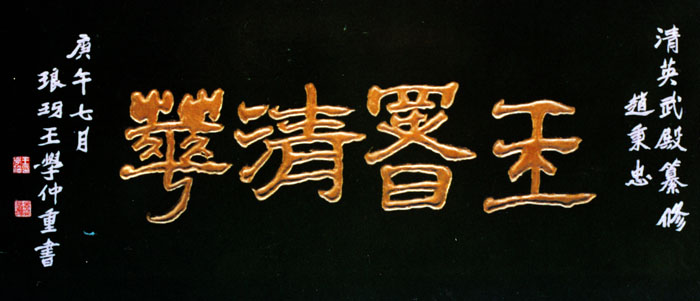 清英武殿纂修
趙秉忠
玉署清華
庚午七月
琅玡王學仲重書